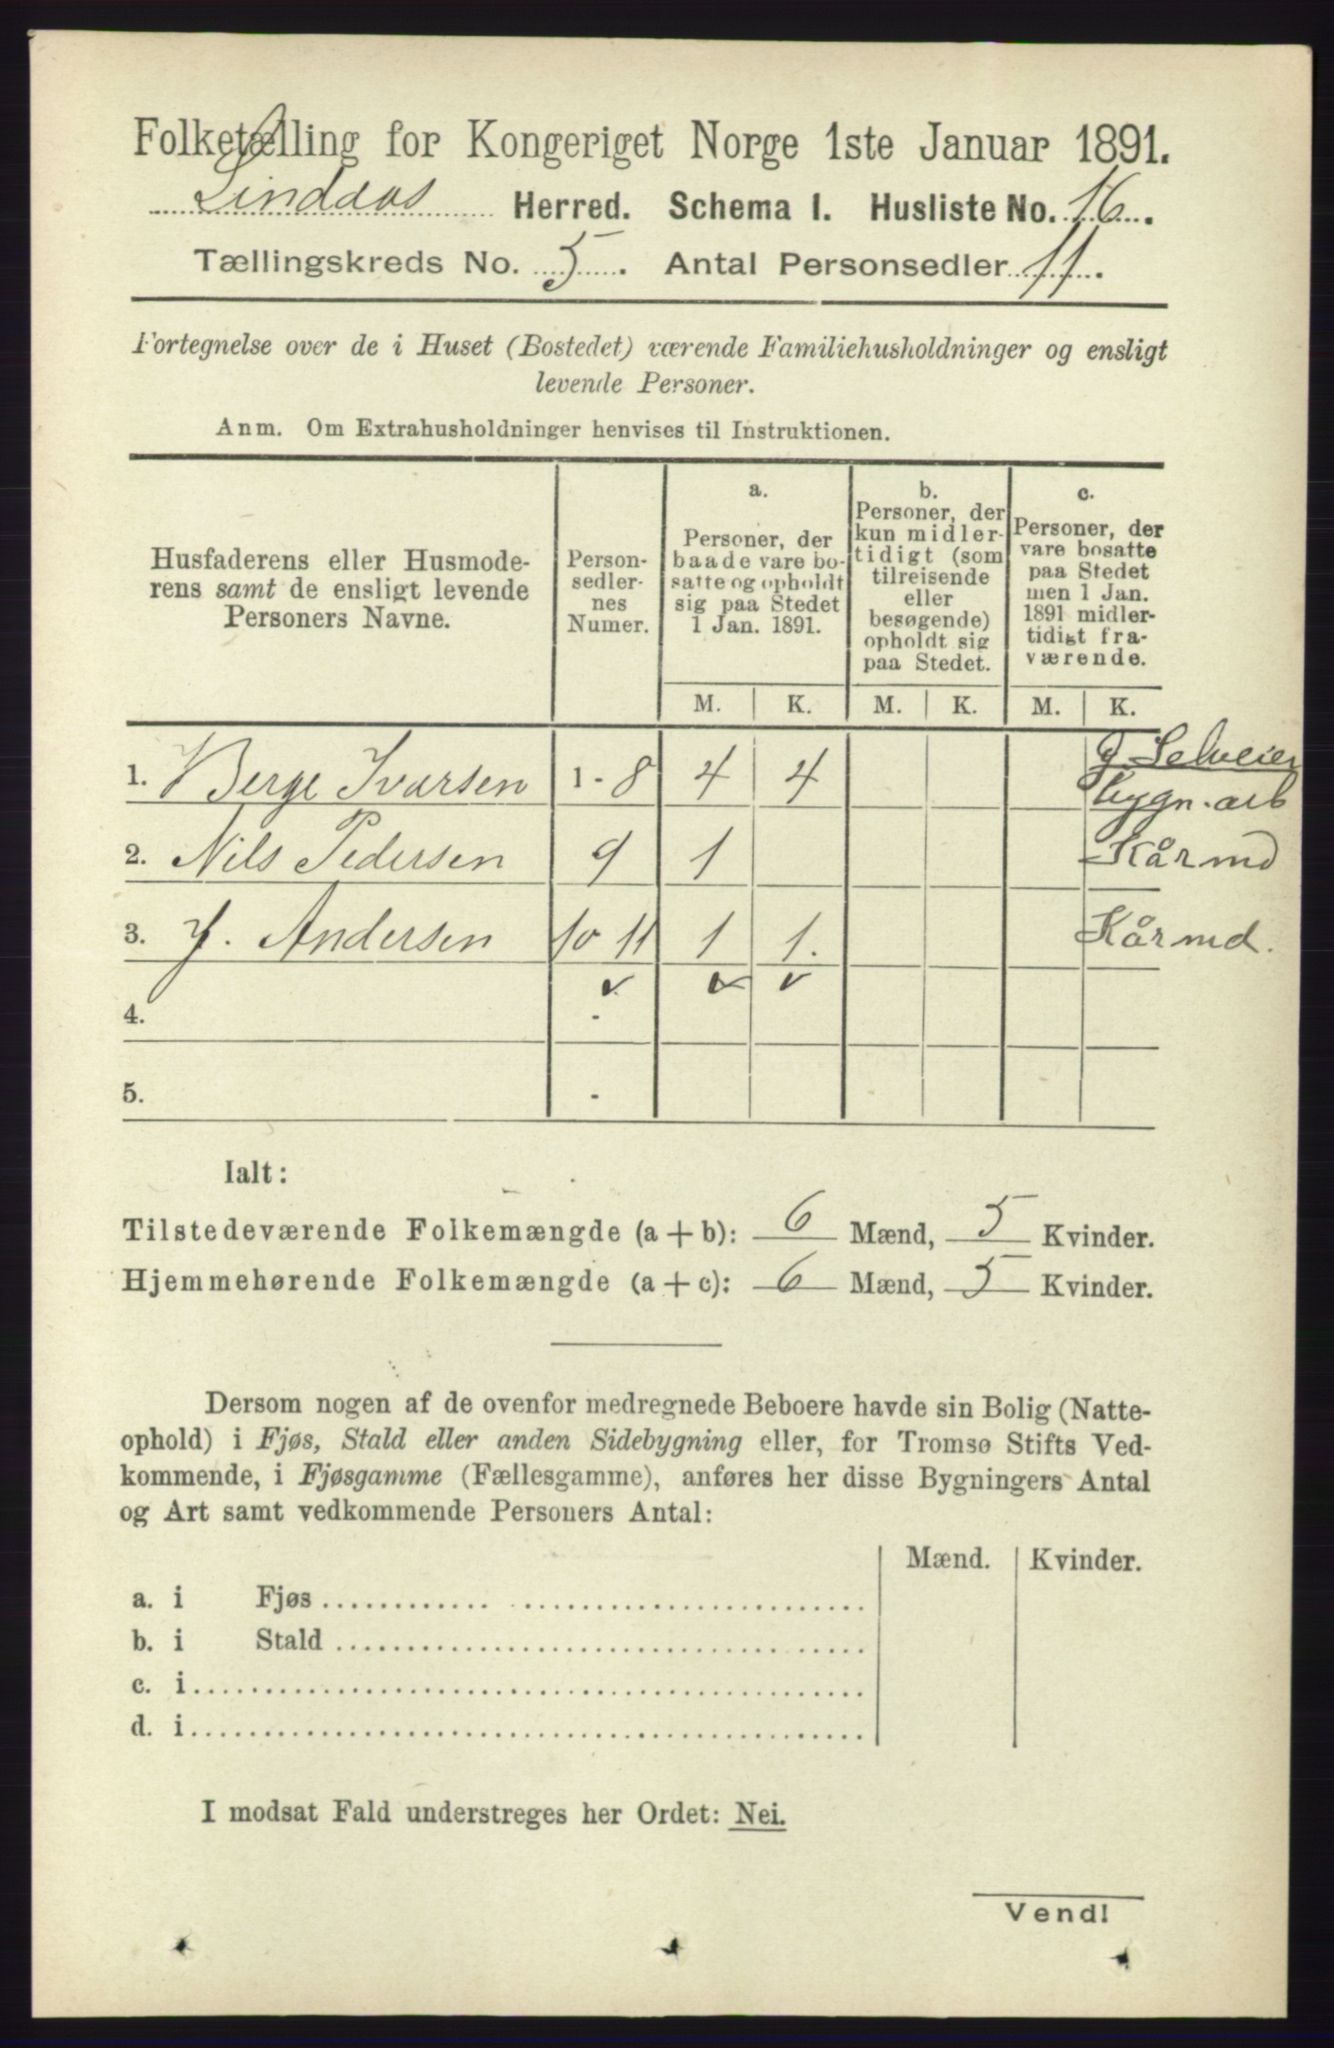 Folketælling for Kongeriget Norge 1ste Januar 1891.
Lindaas Herred. Schema I. Husliste No. 16.
Tællingskreds No. 5. Antal Personsedler 11.
Fortegnelse over de i Huset (Bostedet) værende Familiehusholdninger og ensligt
levende Personer.
Anm. Om Extrahusholdninger henvises til Instruktionen.
Husfaderens eller Husmode-
rens samt de ensligt levende
Personers Navne.
Person-
sedler-
nes
Numer.
a.
Personer, der
baade vare bo-
satte og opholdt
sig paa Stedet
1 Jan. 1891.
b.
Personer, der
kun midler-
tidigt (som
tilreisende
eller
besøgende)
opholdt sig
paa Stedet.
c.
Personer, der
vare bosatte
paa Stedet
men 1 Jan.
1891 midler-
tidigt fra-
værende.
M. K. M. K. M. K.
1. Berge Ivarsen 1 - 8 4 4 G Selveier
bygn. arb
2. Nils Pedersen 9 1 Kårmd
3. J. Andersen 10 11 1 1. Kårmd.
4. -
5. -
Ialt:
Tilstedeværende Folkemængde (a + b): 6 Mænd, 5 Kvinder.
Hjemmehørende Folkemængde (a + c): 6 Mænd, 5 Kvinder.
Dersom nogen af de ovenfor medregnede Beboere havde sin Bolig (Natte-
ophold) i Fjøs, Stald eller anden Sidebygning eller, for Tromsø Stifts Ved-
kommende, i Fjøsgamme (Fællesgamme), anføres her disse Bygningers Antal
og Art samt vedkommende Personers Antal:
Mænd. Kvinder.
a. i Fjøs
b. i Stald
c. i
d. i
I modsat Fald understreges her Ordet: Nei.
Vend!